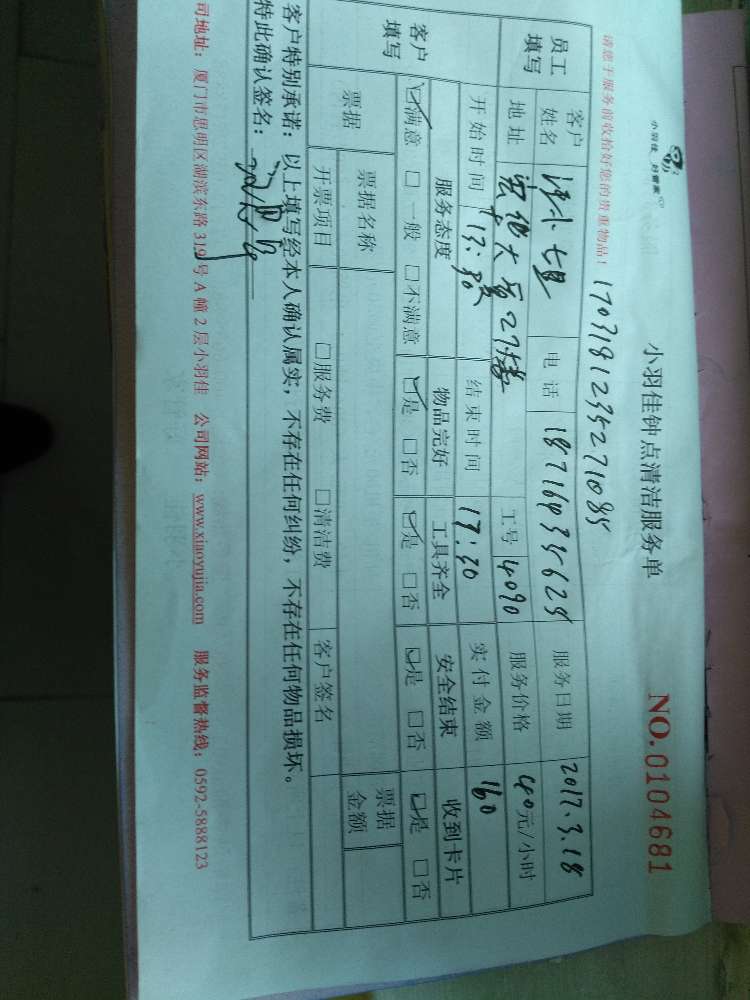 小羽佳 好管家
小羽佳钟点清洁服务单
NO.0104681
请您于服务前收拾好您的贵重物品!
1703181235271085
员工填写
客户姓名
电话 18716035625
服务日期 2017.3.18
地址
工号 4090
服务价格 40元/小时
开始时间 13:30
结束时间 17:30
实付金额 160
客户填写
服务态度 物品完好 工具齐全 安全结束 收到卡片
☑满意 □一般 □不满意 ☑是 □否 ☑是 □否 ☑是 □否 ☑是 □否
票据 票据名称 票据金额
开票项目 □服务费 □清洁费 客户签名
客户特别承诺:以上填写经本人确认属实,不存在任何纠纷,不存在任何物品损坏。
特此确认签名:
司地址:厦门市思明区湖滨东路319号A幢2层小羽佳 公司网站:www.xiaoyujia.com 服务监督热线:0592-5888123